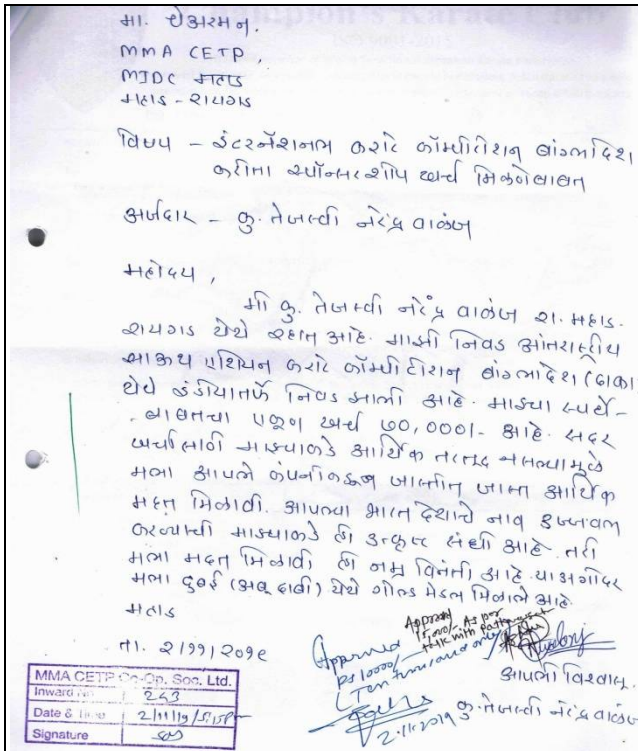 Champion's Karate Club
मा. चेअरमन.
MMA CETP,
MIDC महाड
महाड - रायगड
विषय - इंटरनॅशनल कराटे कॉम्पीटीशन बांग्लादेश
करीता स्पॉन्सरशीप खर्च मिळणेबाबत
अर्जदार - कु. तेजस्वी नरेंद्र वाळंज
महोदय,
मी कु. तेजस्वी नरेंद्र वाळंज रा. महाड.
रायगड येथे रहात आहे. माझी निवड आंतरराष्ट्रीय
साऊथ एशियन कराटे कॉम्पीटीशन बांग्लादेश (ढाका)
येथे इंडीयातर्फे निवड झाली आहे. माझ्या स्पर्धे-
बाबतचा एकूण खर्च ७०,०००/- आहे. सदर
खर्चासाठी माझ्याकडे आर्थिक तरतूद नसल्यामुळे
मला आपले कंपनीकडून जास्तीत जास्त आर्थिक
मदत मिळावी. आपल्या भारत देशाचे नाव उज्ज्वल
करण्याची माझ्याकडे ही उत्कृष्ट संधी आहे. तरी
मला मदत मिळावी ही नम्र विनंती आहे. या अगोदर
मला दुबई (अबू दाबी) येथे गोल्ड मेडल मिळाले आहे.
महाड
ता. २/११/२०१९
Approved
15,000/- As per
talk with
Approved
Rs 10000/-
(Ten thousand only)
2-11-2019
आपली विश्वासू
कु. तेजस्वी नरेंद्र वाळंज
MMA CETP Co-Op. Soc. Ltd.
Inward No. 243
Date & Time 2/11/19/5:15pm
Signature